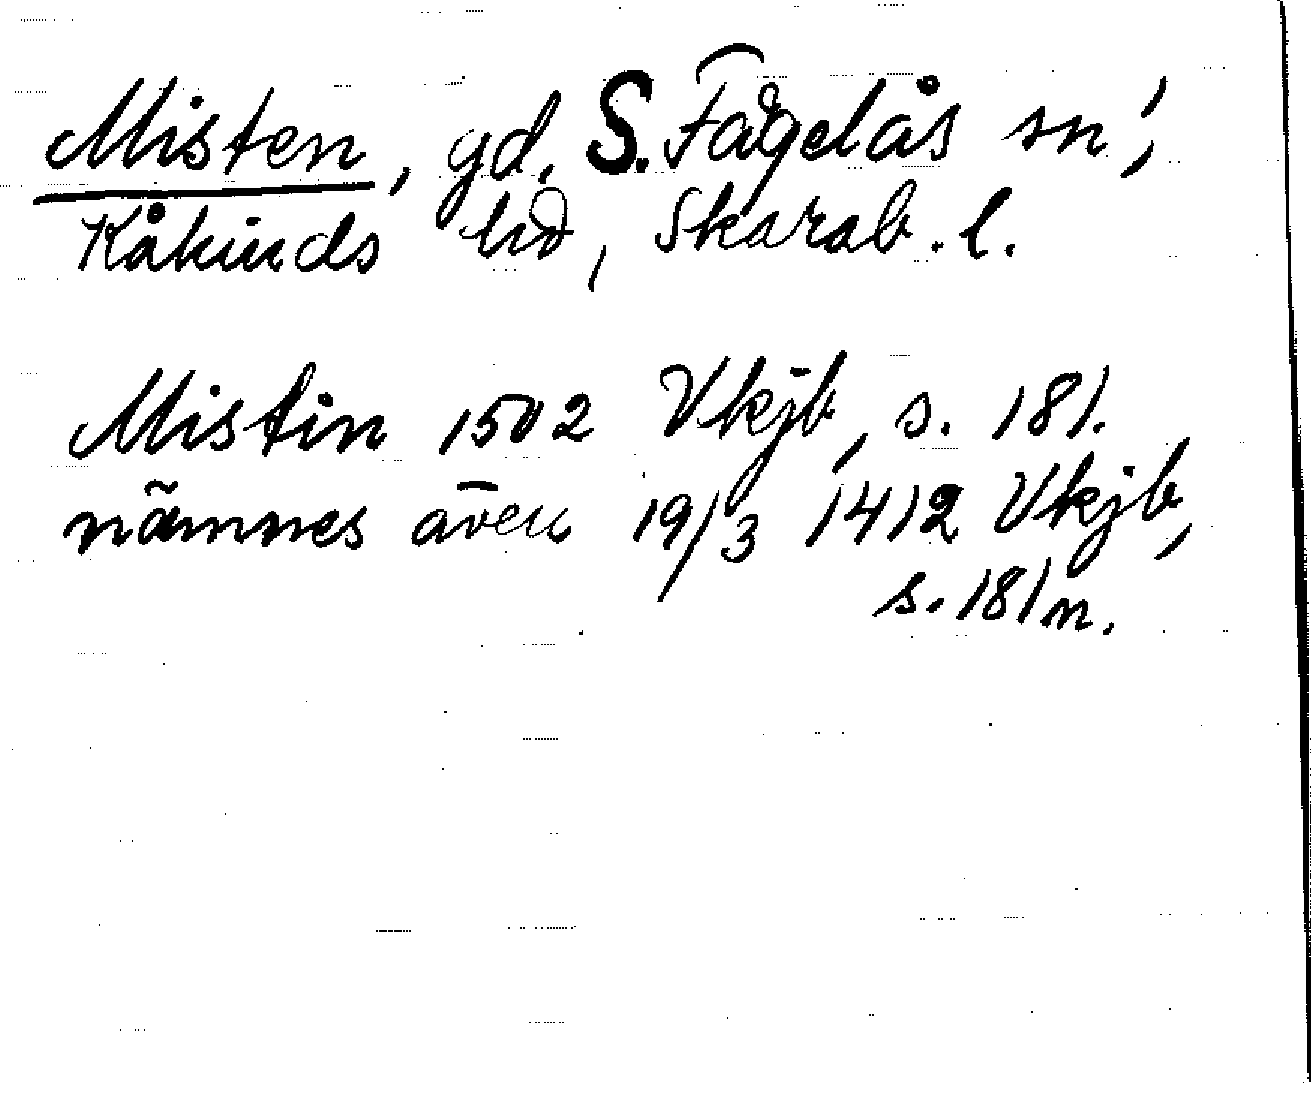 Misten, gd. S. Fågelås sn,
Kåkinds hd, Skarab. l.
Mistin 1502 Vkjb, s. 181.
nämnes även 19/3 1412 Vkjb,
s. 181 n.